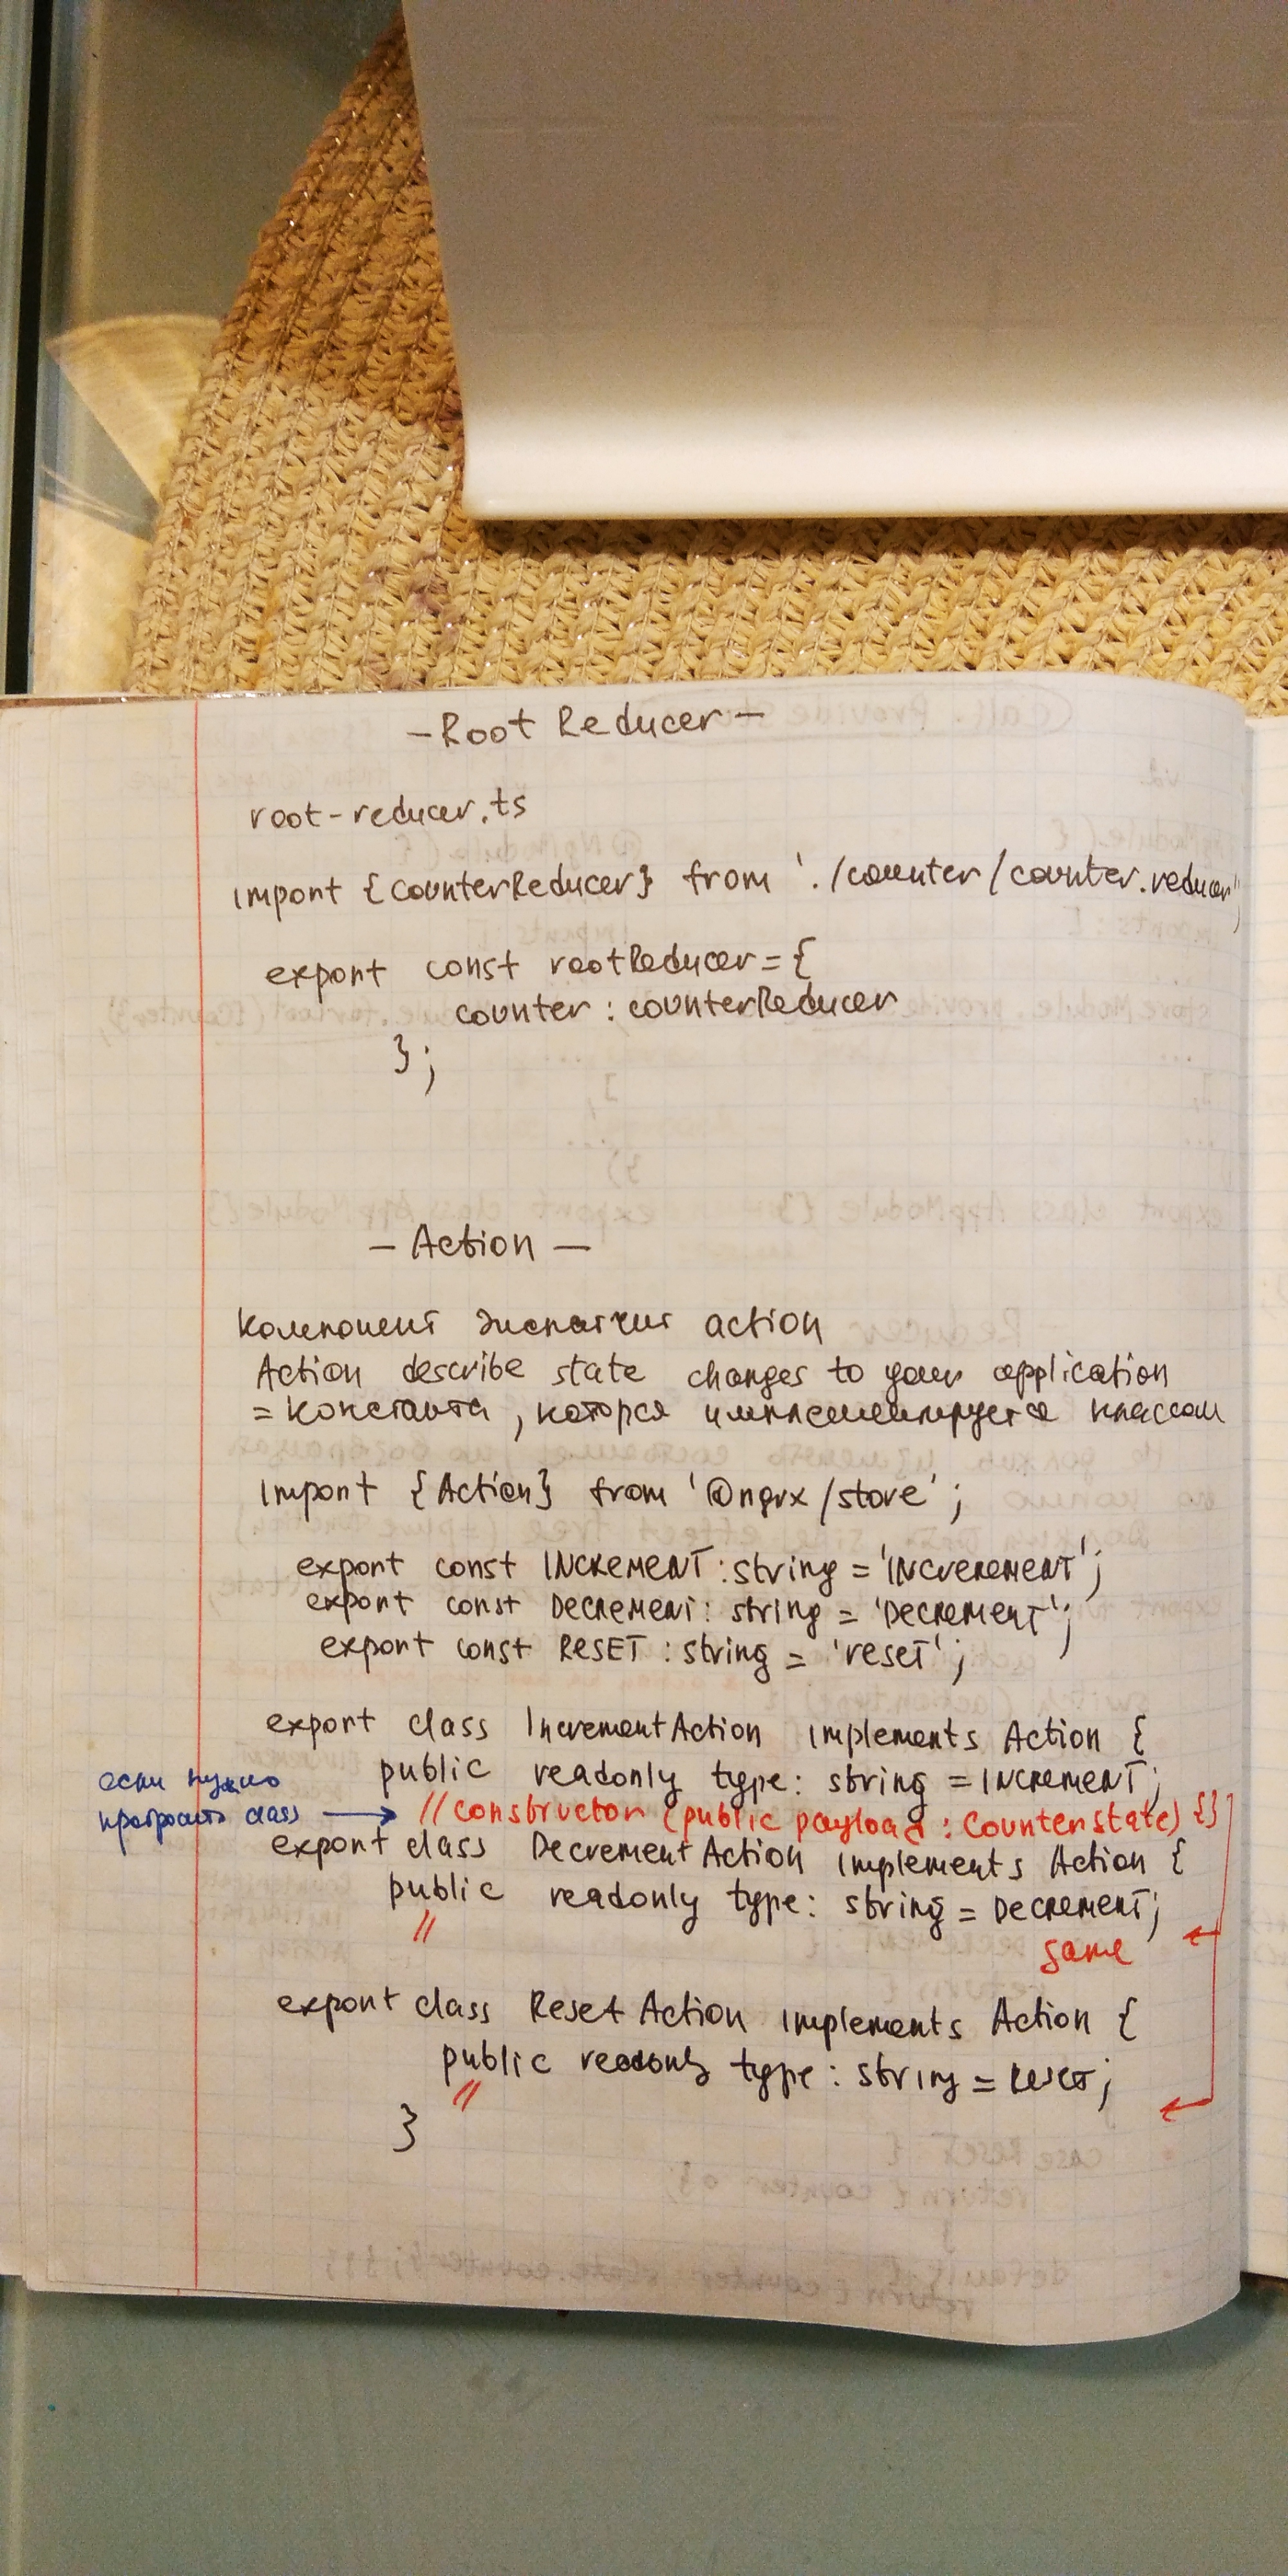 - Root Reducer -
root-reducer.ts
import {counterReducer} from './counter/counter.reducer';
export const rootReducer = {
counter : counterReducer
};
- Action -
Компонент диспатчит action
Action describe state changes to your application
= константа, которся имплементируется классом
import {Action} from '@ngrx/store';
export const INCREMENT : string = 'INCREREMENT';
export const DECREMENT : string = 'DECREMENT';
export const RESET : string = 'reset';
export class IncrementAction implements Action {
public readonly type: string = INCREMENT;
если нужно
пробросить class → // constructor (public payload : Counterstate) {}
export class DecrementAction implements Action {
public readonly type: string = DECREMENT;
// same
export class ResetAction implements Action {
public readonly type : string = RESET;
//
}